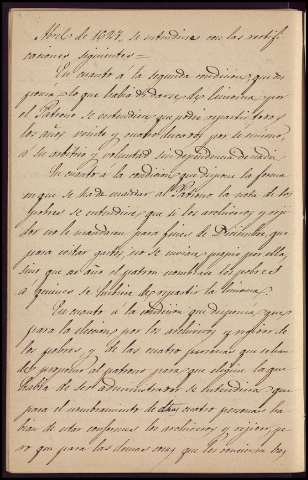 Abril de 1627, se entendiera con las rectifi-
caciones siguientes =
En cuanto a la segunda condicion, que dis-
ponia lo que habia de darse de limosna por
el Patrono se entendiera que podia repartir todos
los años veinte y cuatro ducados por si mismo,
a su arbitrio y voluntad sin dependencia de nadie.
En cuanto a la condicion que dispone la forma
en que se ha de mandar al Patrono la nota de los
pobres se entendiera que si los arcedianos y
no le mandaran para fines de Diciembre, que
para evitar gastos, no se envien pagos por ella,
sino que ese año el patron nombrara los pobres
a quienes se hubiera de repartir la limosna.
En cuanto a la condicion que dispensa, que
para la eleccion por los arcedianos y
los pobres, y de las cuatro personas que se han
de proponer al patrono para que eligiera la que
habia de ser administrador se entendiera que
para el nombramiento de estas cuatro personas ha-
bian de estar conformes los arcedianos y pe-
ro que para las demas cosas que les concierna